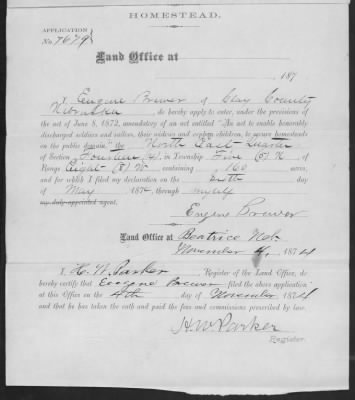 HOMESTEAD.
APPLICATION
No. 7679
Land Office at
187
I, Eugene Brewer of Clay County
Nebraska, do hereby apply to enter, under the provisions of
the act of June 8, 1872, amendatory of an act entitled "An act to enable honorably
discharged soldiers and sailors, their widows and orphan children, to secure homesteads
on the public domain," the North East Quarter
of Section Fourteen (14), in Township Five (5) N of
Range Eight (8) W containing 160 acres,
and for which I filed my declaration on the day
of May 1874 through myself
my duly appointed agent.
Eugene Brewer
Land Office at Beatrice Neb
November 4, 1874
I, H. W. Parker, Register of the Land Office, do
hereby certify that Eugene Brewer filed the above application
at this Office on the 4th day of November 1874
and that he has taken the oath and paid the fees and commissions prescribed by law.
H. W. Parker
Register.